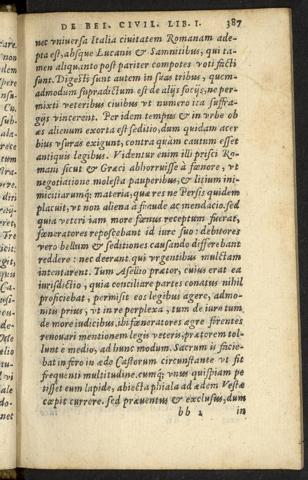 DE BEL. CIVIL. LIB. I. 387
nec vniuersa Italia ciuitatem Romanam ade-
pta est, absque Lucanis & Samnitibus, qui ta-
men aliquanto post pariter compotes voti facti
sunt. Digesti sunt autem in suas tribus, quem-
admodum supradictum est de alijs socijs, ne per-
mixti veteribus ciuibus vt numero ita suffra-
gijs vincerent. Per idem tempus & in vrbe ob
æs alienum exorta est seditio, dum quidam acer-
bius vsuras exigunt, contra quàm cautum esset
antiquis legibus. Videntur enim illi prisci Ro-
mani sicut & Græci abhorruisse à fœnore, vt
negotiatione molesta pauperibus, & litium ini-
micitiarumq; materia, quæ res ne Persis quidem
placuit, vt non aliena à fraude ac mendacio. sed
quia veteri iam more fœnus receptum fuerat,
fœneratores reposcebant id iure suo: debitores
vero bellum & seditiones causando differebant
reddere: nec deerant qui vrgentibus mulctam
intentarent. Tum Asellio prætor, cuius erat ea
iurisdictio, quia conciliare partes conatus nihil
proficiebat, permisit eos legibus agere, admo-
nitu prius, vt in re perplexa, tum de iure tum
de more iudicibus. ibi fœneratores ægre ferentes
renouari mentionem legis veteris, prætorem tol-
lunt e medio, ad hunc modum. Sacrum is facie-
bat in foro in æde Castorum circunstante vt fit
frequenti multitudine. cumq; vnus quispiam pe
tisset eum lapide, abiecta phiala ad ædem Vestæ
cœpit currere. sed præuentus & exclusus, dum
bb 2 in